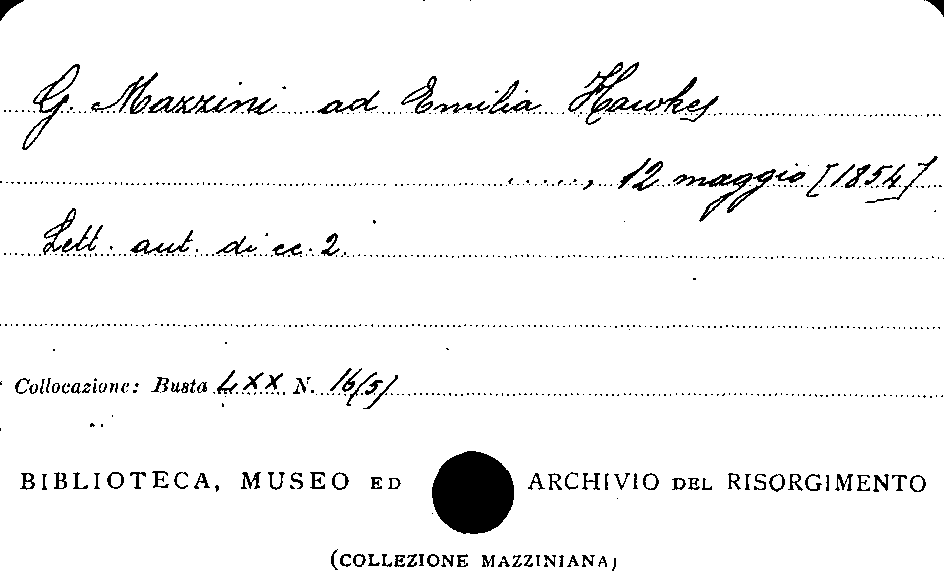 G. Mazzini ad Emilia Hawkes
....., 12 maggio [1854]
Lett. aut. di cc. 2.
Collocazione: Busta LXX N. 16(5)
BIBLIOTECA, MUSEO ED ARCHIVIO DEL RISORGIMENTO
(COLLEZIONE MAZZINIANA)